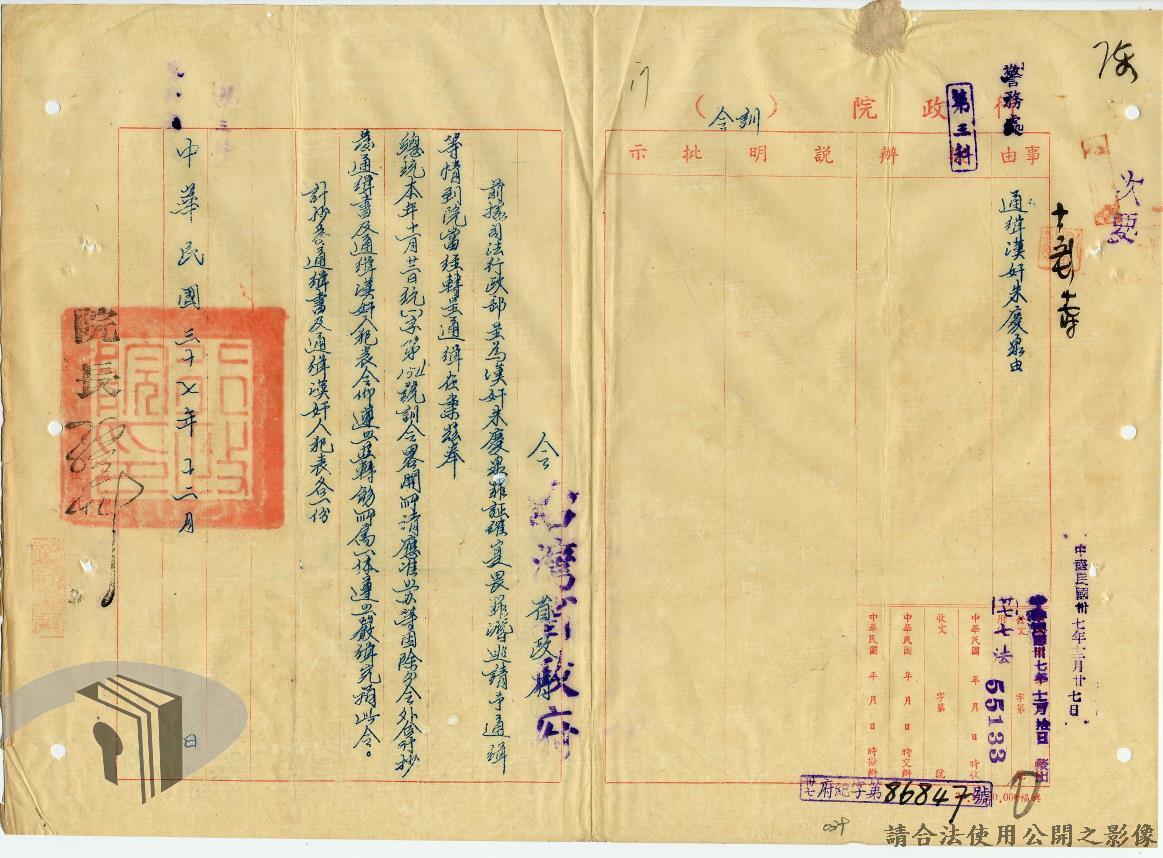 次要
警務處
第三科
行政院（訓令）
事由
擬辦
說明
批示
通緝漢奸朱慶泉由
中華民國卅七年十二月廿七日
七法
55133
收文 字第 號
中華民國 年 月 日 時收
中華民國 年 月 日 時交辦
中華民國 年 月 日 時擬辦
卅七府紀字第86847號
令 臺灣省政府
前據司法行政部呈為漢奸朱慶泉罪証確實畏罪潛逃請予通緝
等情到院當經轉呈通緝在案茲奉
總統本年十一月廿三日統(一)字第 號訓令畧開所請應准照辦等因除分令外合行抄
發通緝書及通緝漢奸人犯表令仰遵照並轉飭所屬一体遵照嚴緝究辦此令。
計抄發通緝書及通緝漢奸人犯表各一份
院長 孫科
中華民國三十七年十二月 日
請合法使用公開之影像